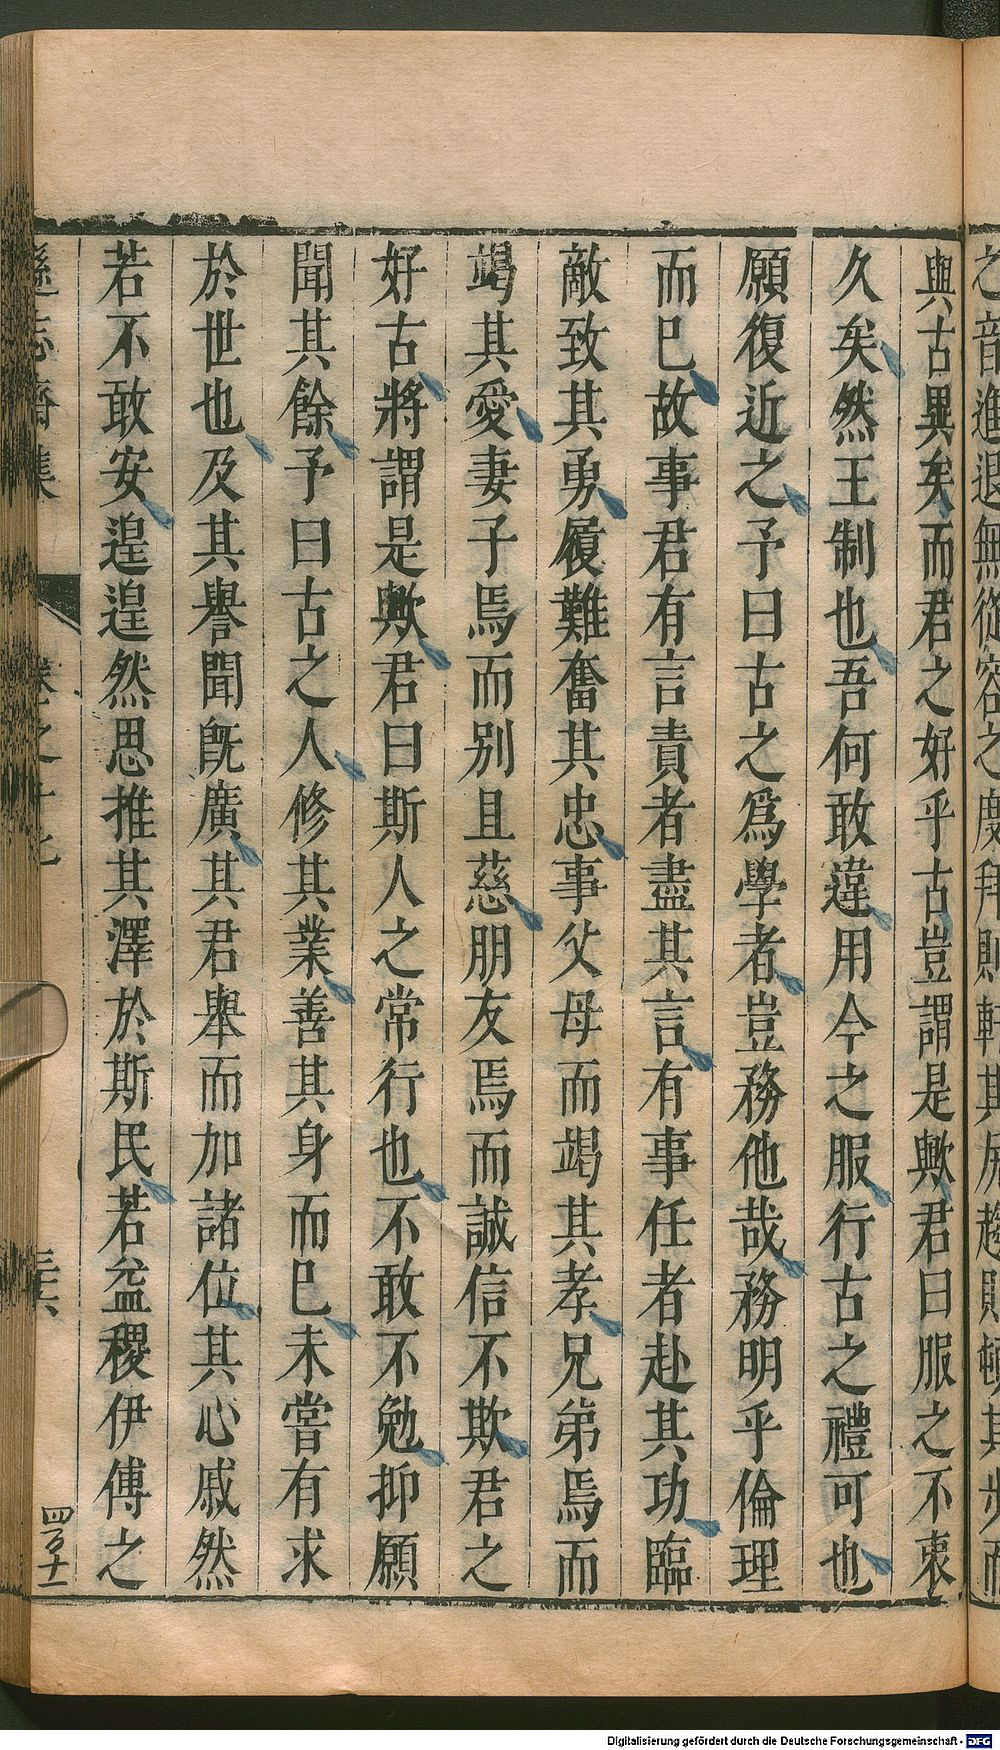 之音進退無從容之度拜則軒其尻趨則頓其步而
與古異矣而君之好乎古豈謂是歟君曰服之不衷
久矣然王制也吾何敢違用今之服行古之禮可也
願復近之予曰古之爲學者豈務他哉務明乎倫理
而已故事君有言責者盡其言有事任者赴其功臨
敵致其勇履難奮其忠事父母而竭其孝兄弟焉而
竭其愛妻子焉而別且慈朋友焉而誠信不欺君之
好古將謂是歟君曰斯人之常行也不敢不勉抑願
聞其餘予曰古之人修其業善其身而已未嘗有求
於世也及其譽聞旣廣其君舉而加諸位其心戚然
若不敢安遑遑然思推其澤於斯民若益稷伊傅之
遜志齋集 卷之十七 三六 四百十一
Digitalisierung gefördert durch die Deutsche Forschungsgemeinschaft - DFG